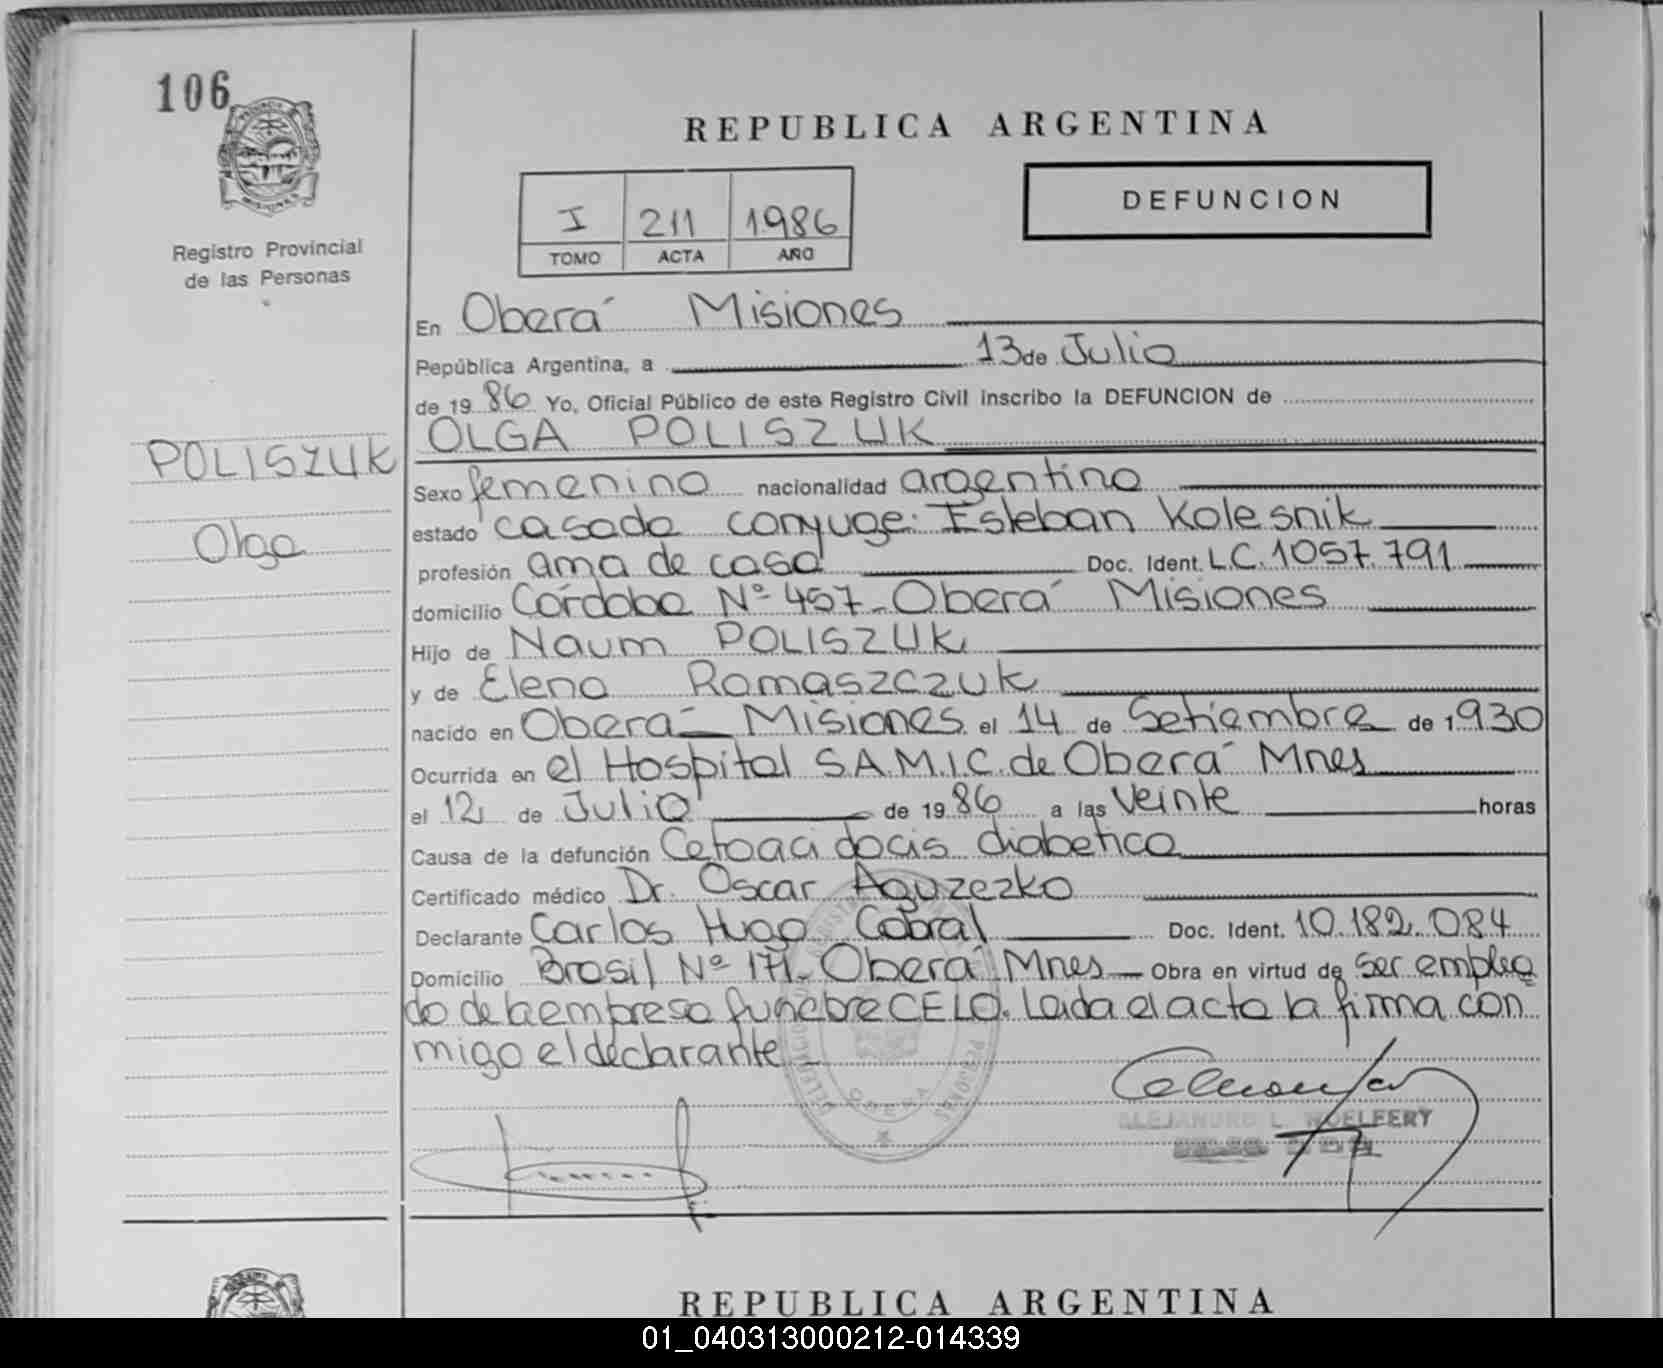 106
REPUBLICA ARGENTINA
DEFUNCION
I 211 1986
TOMO ACTA AÑO
Registro Provincial
de las Personas
En Oberá Misiones
República Argentina, a 13 de Julio
de 19 86 Yo, Oficial Público de este Registro Civil inscribo la DEFUNCION de
OLGA POLISZUK
POLISZUK
Olga
Sexo femenino nacionalidad argentina
estado casada conyuge: Esteban Kolesnik
profesión ama de casa Doc. Ident. L.C. 1057.791
domicilio Córdoba Nº 457 - Oberá Misiones
Hijo de Naum POLISZUK
y de Elena Romaszczuk
nacido en Oberá - Misiones el 14 de Setiembre de 1930
Ocurrida en el Hospital S.A.M.I.C. de Oberá Mnes
el 12 de Julio de 19 86 a las veinte horas
Causa de la defunción Cetoacidocis diabetica
Certificado médico Dr. Oscar Aguzezko
Declarante Carlos Hugo Cabral Doc. Ident. 10.182.084
Domicilio Brasil Nº 171 - Oberá Mnes - Obra en virtud de ser emplea
do de la empresa funebre CELO. Leida el acta la firma con
migo el declarante
OBERA
ALEJANDRO L. WOELFERY
REPUBLICA ARGENTINA
01_040313000212-014339